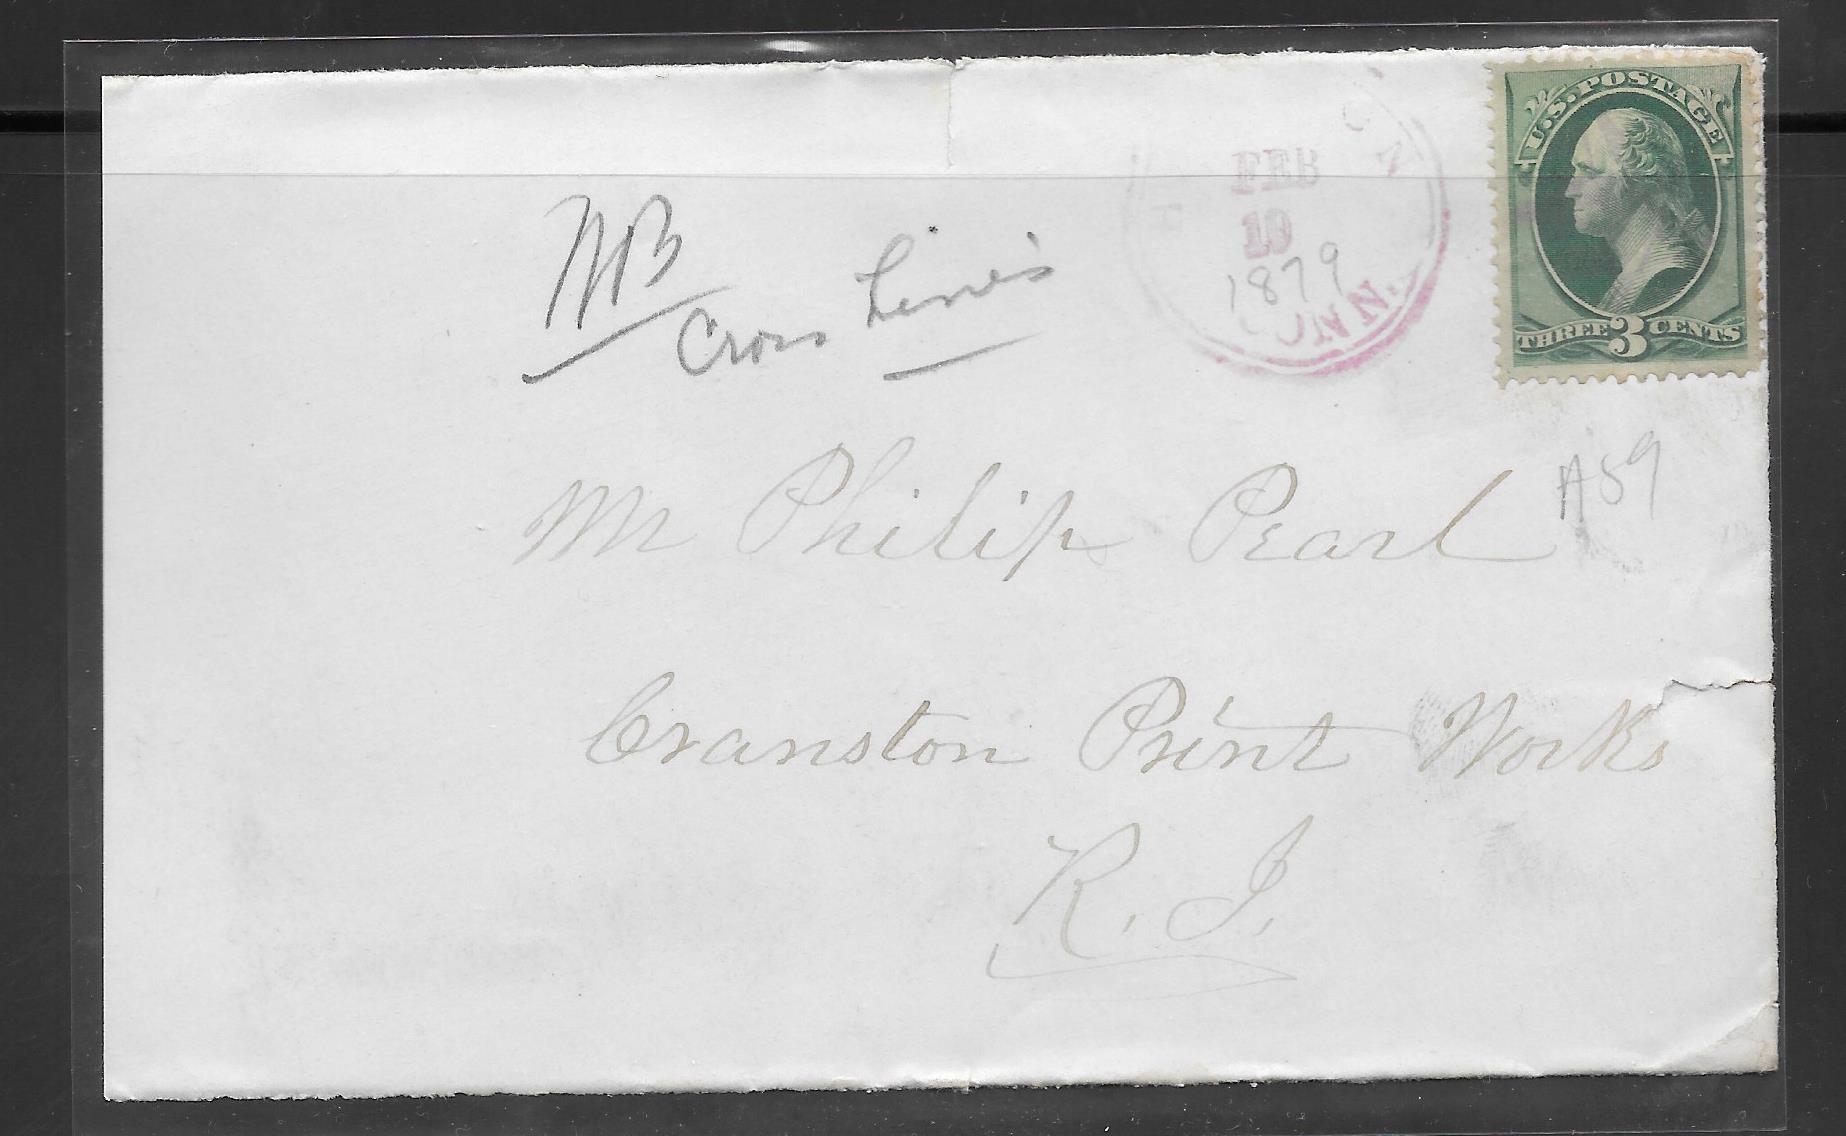 U.S. POSTAGE
THREE 3 CENTS
FEB
10
1879
CONN.
NB
Cross Lines
A59
Mr Philip Pearl
Cranston Print Works
R. I.